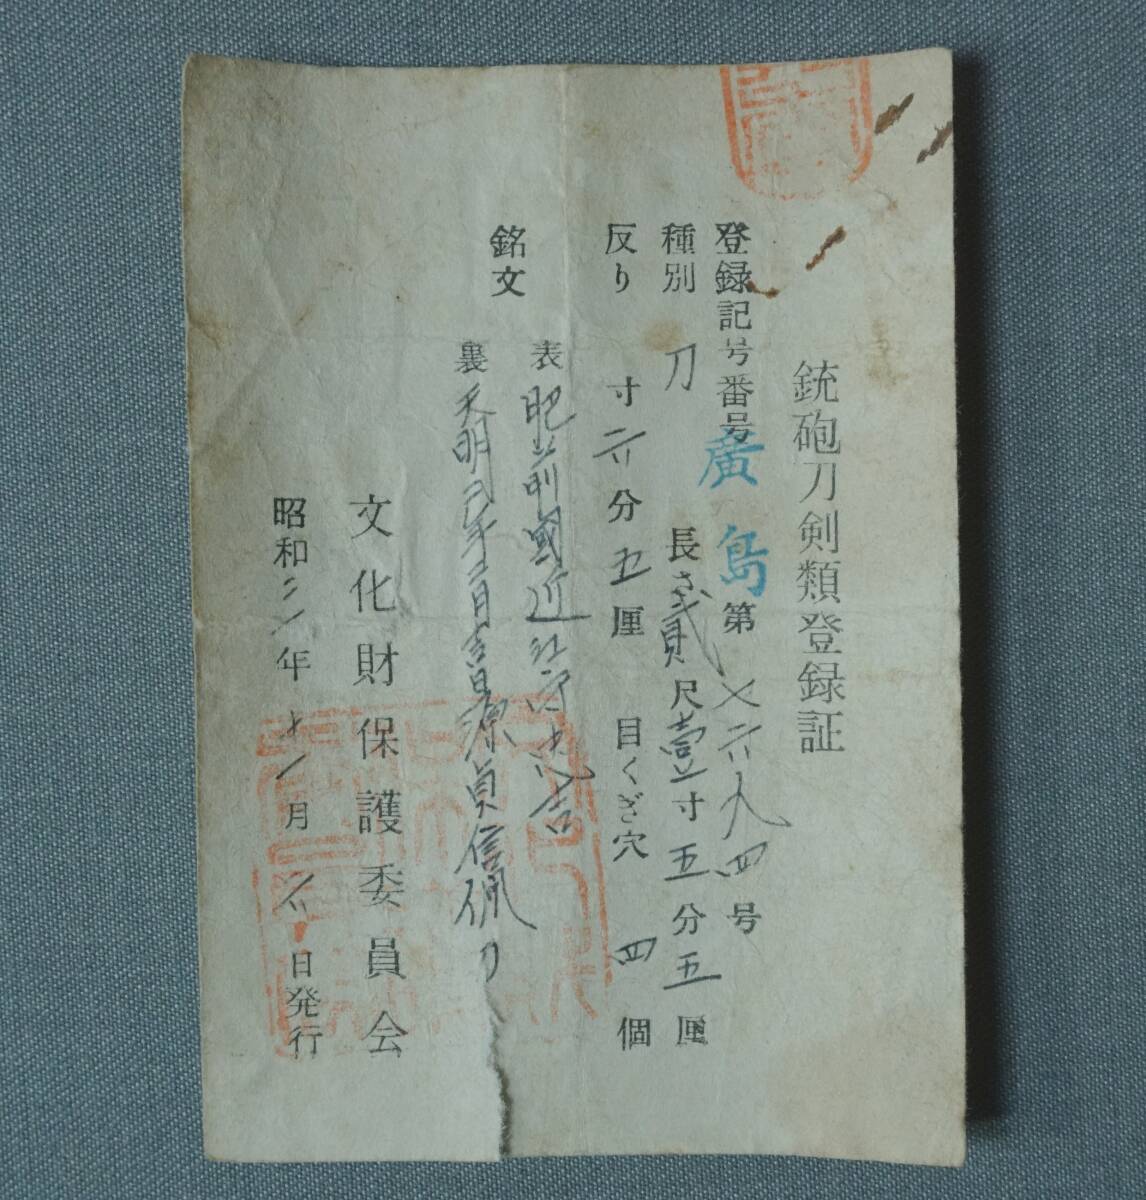 銃砲刀剣類登録証
登録記号番号 廣島 第 六九四 号
種別 刀 長さ 貮尺壹寸五分五厘
反り 寸六分五厘 目くぎ穴 四個
銘文
表 肥前國近江守忠吉
裏 天明年月吉日源貞信佩刀
文化財保護委員会
昭和年十一月日発行